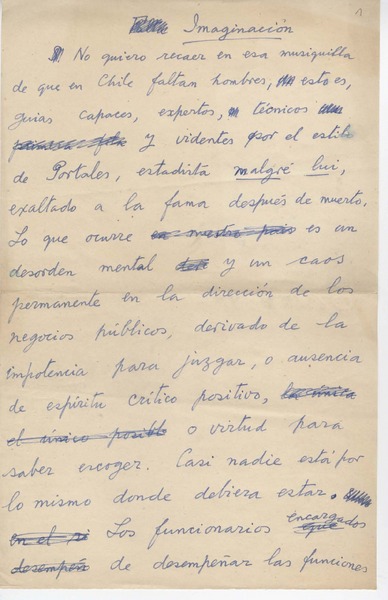 1
Imaginación
No quiero recaer en esa musiquilla
de que en Chile faltan hombres, esto es,
guías capaces, expertos, técnicos
y videntes por el estilo
de Portales, estadista malgré lui,
exaltado a la fama después de muerto.
Lo que ocurre en nuestro país es un
desorden mental y un caos
permanente en la dirección de los
negocios públicos, derivado de la
impotencia para juzgar, o ausencia
de espíritu crítico positivo, la única
el único posible o virtud para
saber escoger. Casi nadie está por
lo mismo donde debiera estar.
encargados
en el Los funcionarios que
desempeñ de desempeñar las funciones